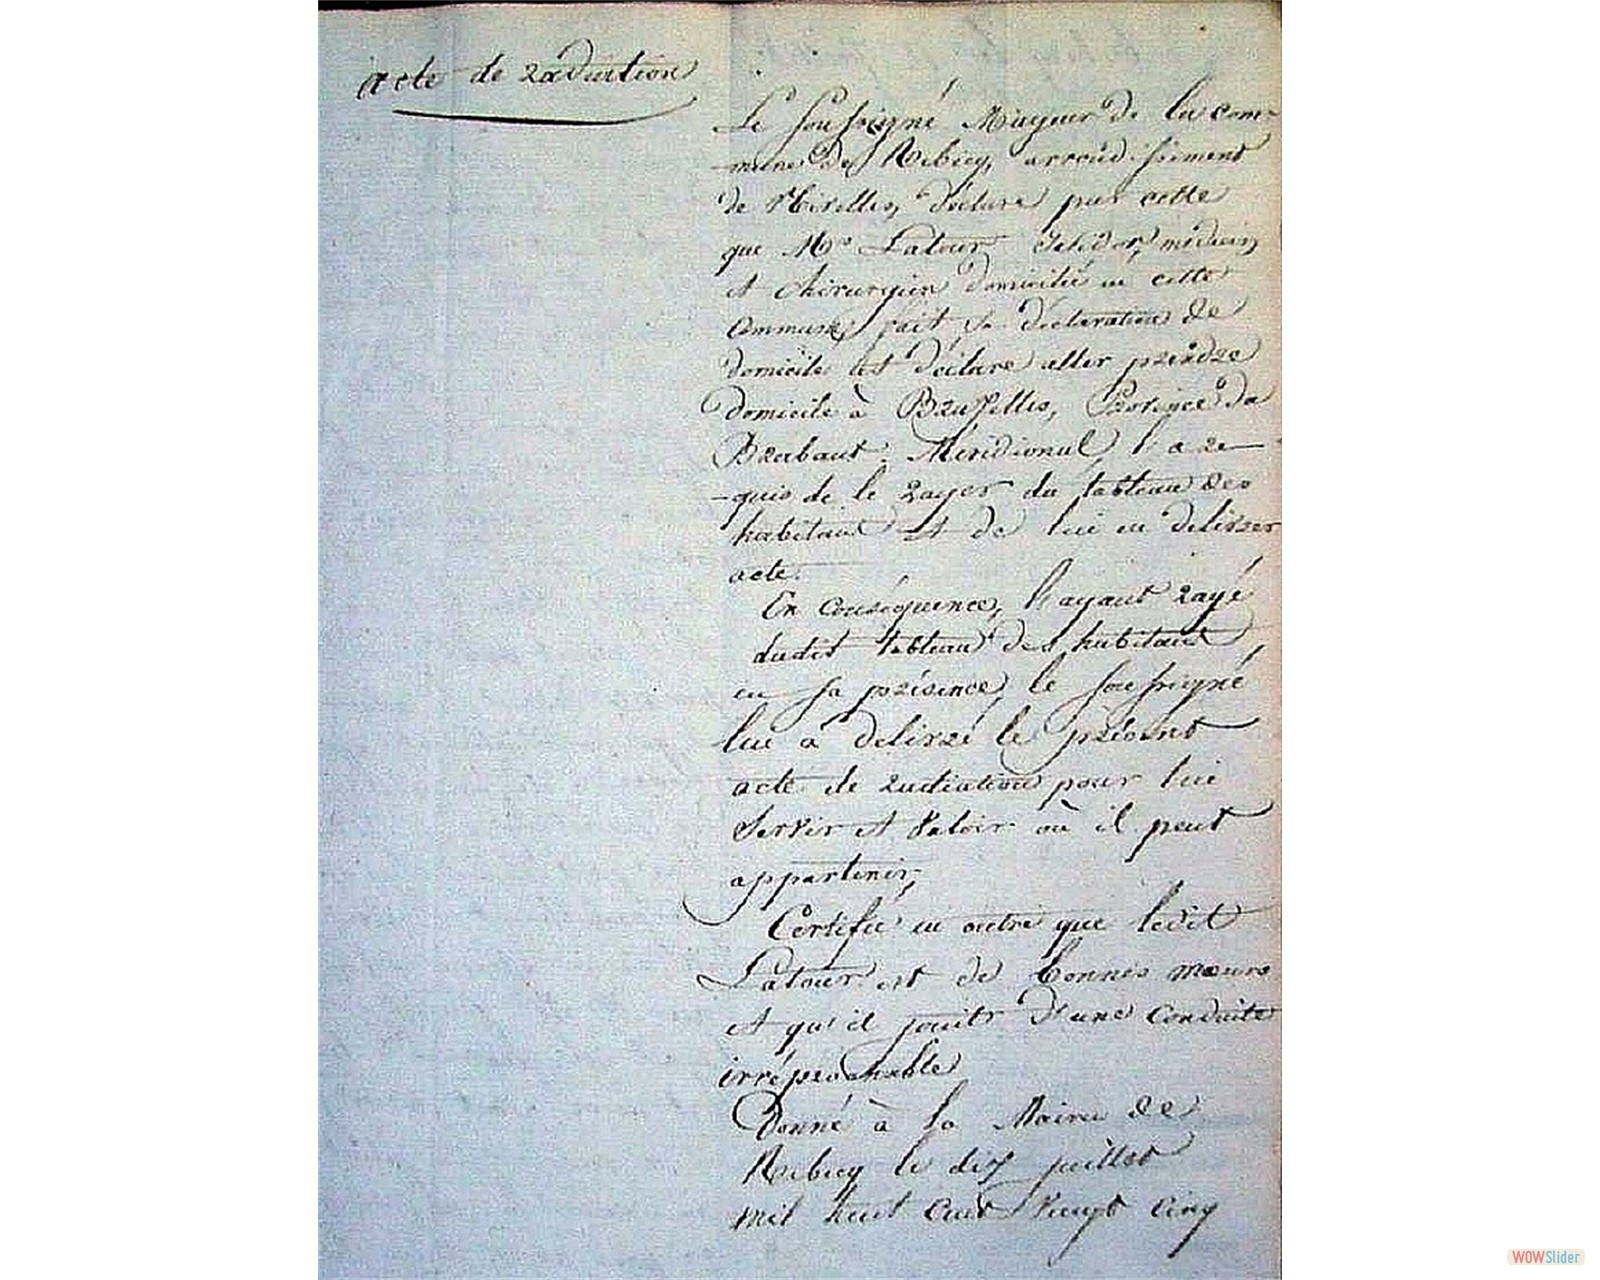 acte de radiation
Le soussigné Mayeur de la com-
mune de Rebecq, arrondissement
de Nivelles, déclare par cette
que Mr Latour Isidor, médecin
et chirurgien domicilié en cette
commune, fait sa déclaration de
domicile et déclare aller prendre
domicile à Bruxelles, Province du
Brabant Méridional, l'a re-
-quis de le rayer du tableau des
habitans et de lui en delivrer
acte.
En conséquence, l'ayant rayé
dudit tableau des habitans,
en sa présence, le soussigné
lui a delivré le présent
acte de radiation pour lui
servir et valoir où il peut
appartenir,
Certifie en outre que ledit
Latour est de bonnes mœurs
et qu'il jouit d'une conduite
irréprochable
Donné à la Mairie de
Rebecq le dix juillet
mil huit cent vingt cinq
WOWSlider